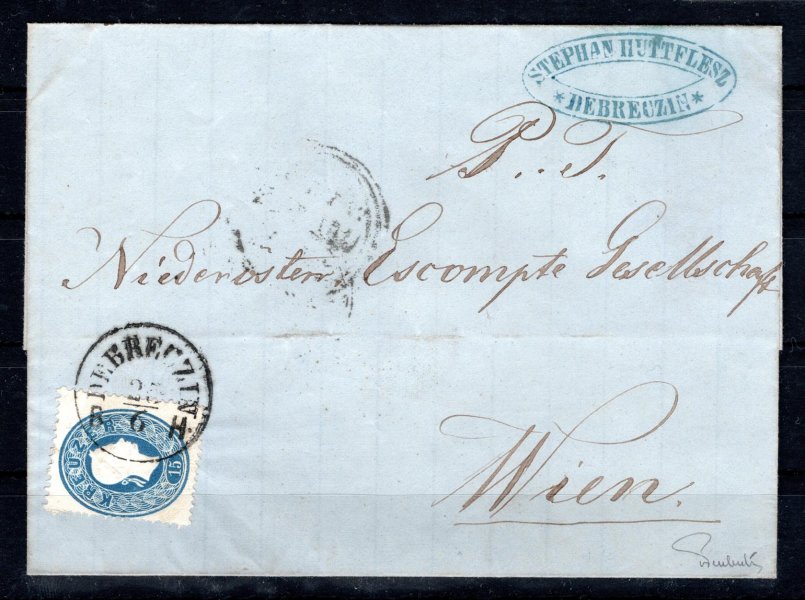 STEPHAN HUTTFLESZ
* DEBRECZIN *
P. T.
Niederösterr Escompte Gesellschaft
DEBRECZIN
6 H.
15 KREUZER
Wien.